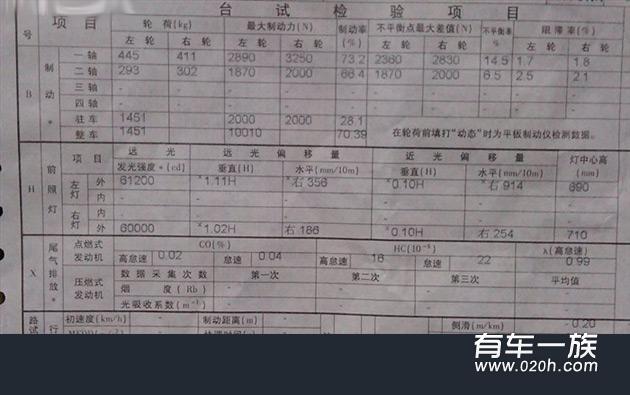 台 试 检 验 项 目
号 项 目 轮 荷(kg) 最大制动力(N) 制动率(%) 不平衡点最大差值(N) 不平衡率% 阻滞率(%)
左 轮 右 轮 左 轮 右 轮 左 轮 右 轮 左 轮 右 轮
B 制动* 一 轴 445 411 2890 3250 73.2 2360 2830 14.5 1.7 1.8
二 轴 293 302 1870 2000 66.4 1870 2000 6.5 2.5 2.1
三 轴 - - - - - - - - - -
四 轴 - - - - - - - - - -
驻 车 1451 2000 2000 28.1
整 车 1451 10010 70.39 在轮荷前填打“动态”时为平板制动仪检测数据。
H 前照灯 项 目 远 光 远 光 偏 移 量 近 光 偏 移 量 灯中心高(mm)
发光强度*(cd) 垂直(H) 水平(mm/10m) 垂直(H) 水平(mm/10m)
左灯 外 61200 ×1.11H ×右 356 ×0.10H ×右 914 690
内 - - - - -
右灯 内 - - - - -
外 60000 ×1.02H 右 186 ×0.10H 右 254 710
X 尾气排放* 点燃式发动机 CO(%) HC(10⁻⁶) λ(高怠速)
高怠速 0.02 怠速 0.04 高怠速 16 怠速 22 0.99
压燃式发动机 数 据 采 集 次 数 第一次 第二次 第三次 平均值
烟 度(Rb) - - - -
光吸收系数(m⁻¹) - - - -
路试 行 初速度(km/h) 制动距离(m) 侧滑(m/km) - 0.20
有车一族
www.020h.com